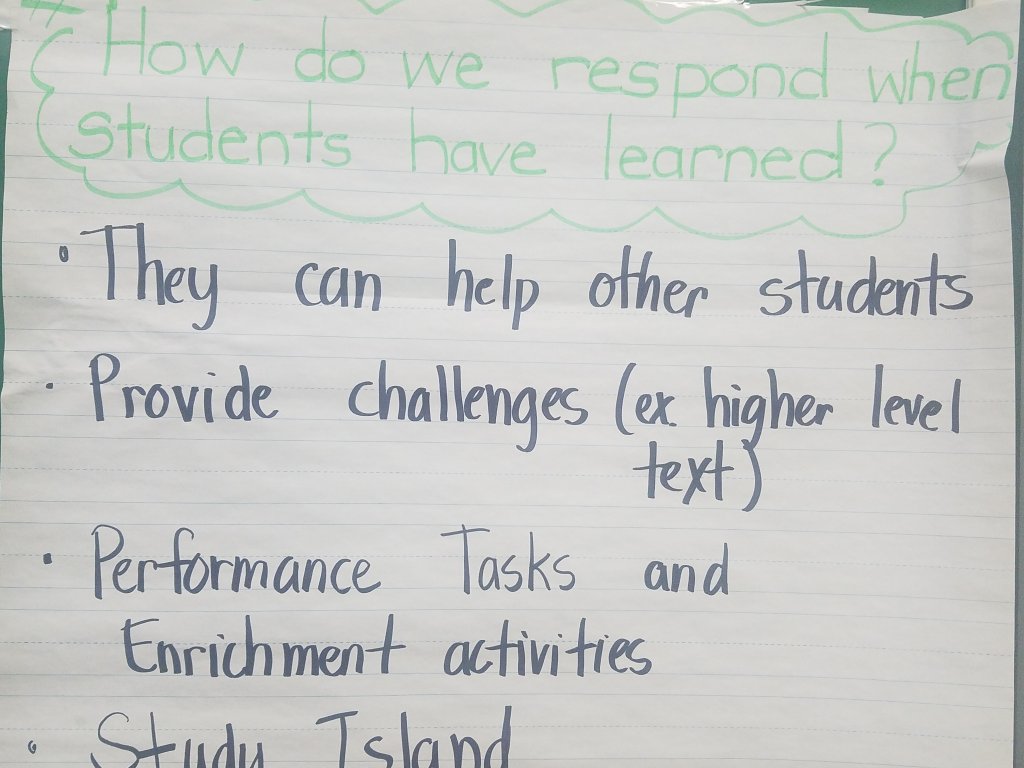 How do we respond when
students have learned?
• They can help other students
• Provide challenges (ex. higher level
text)
• Performance Tasks and
Enrichment activities
• Study Island